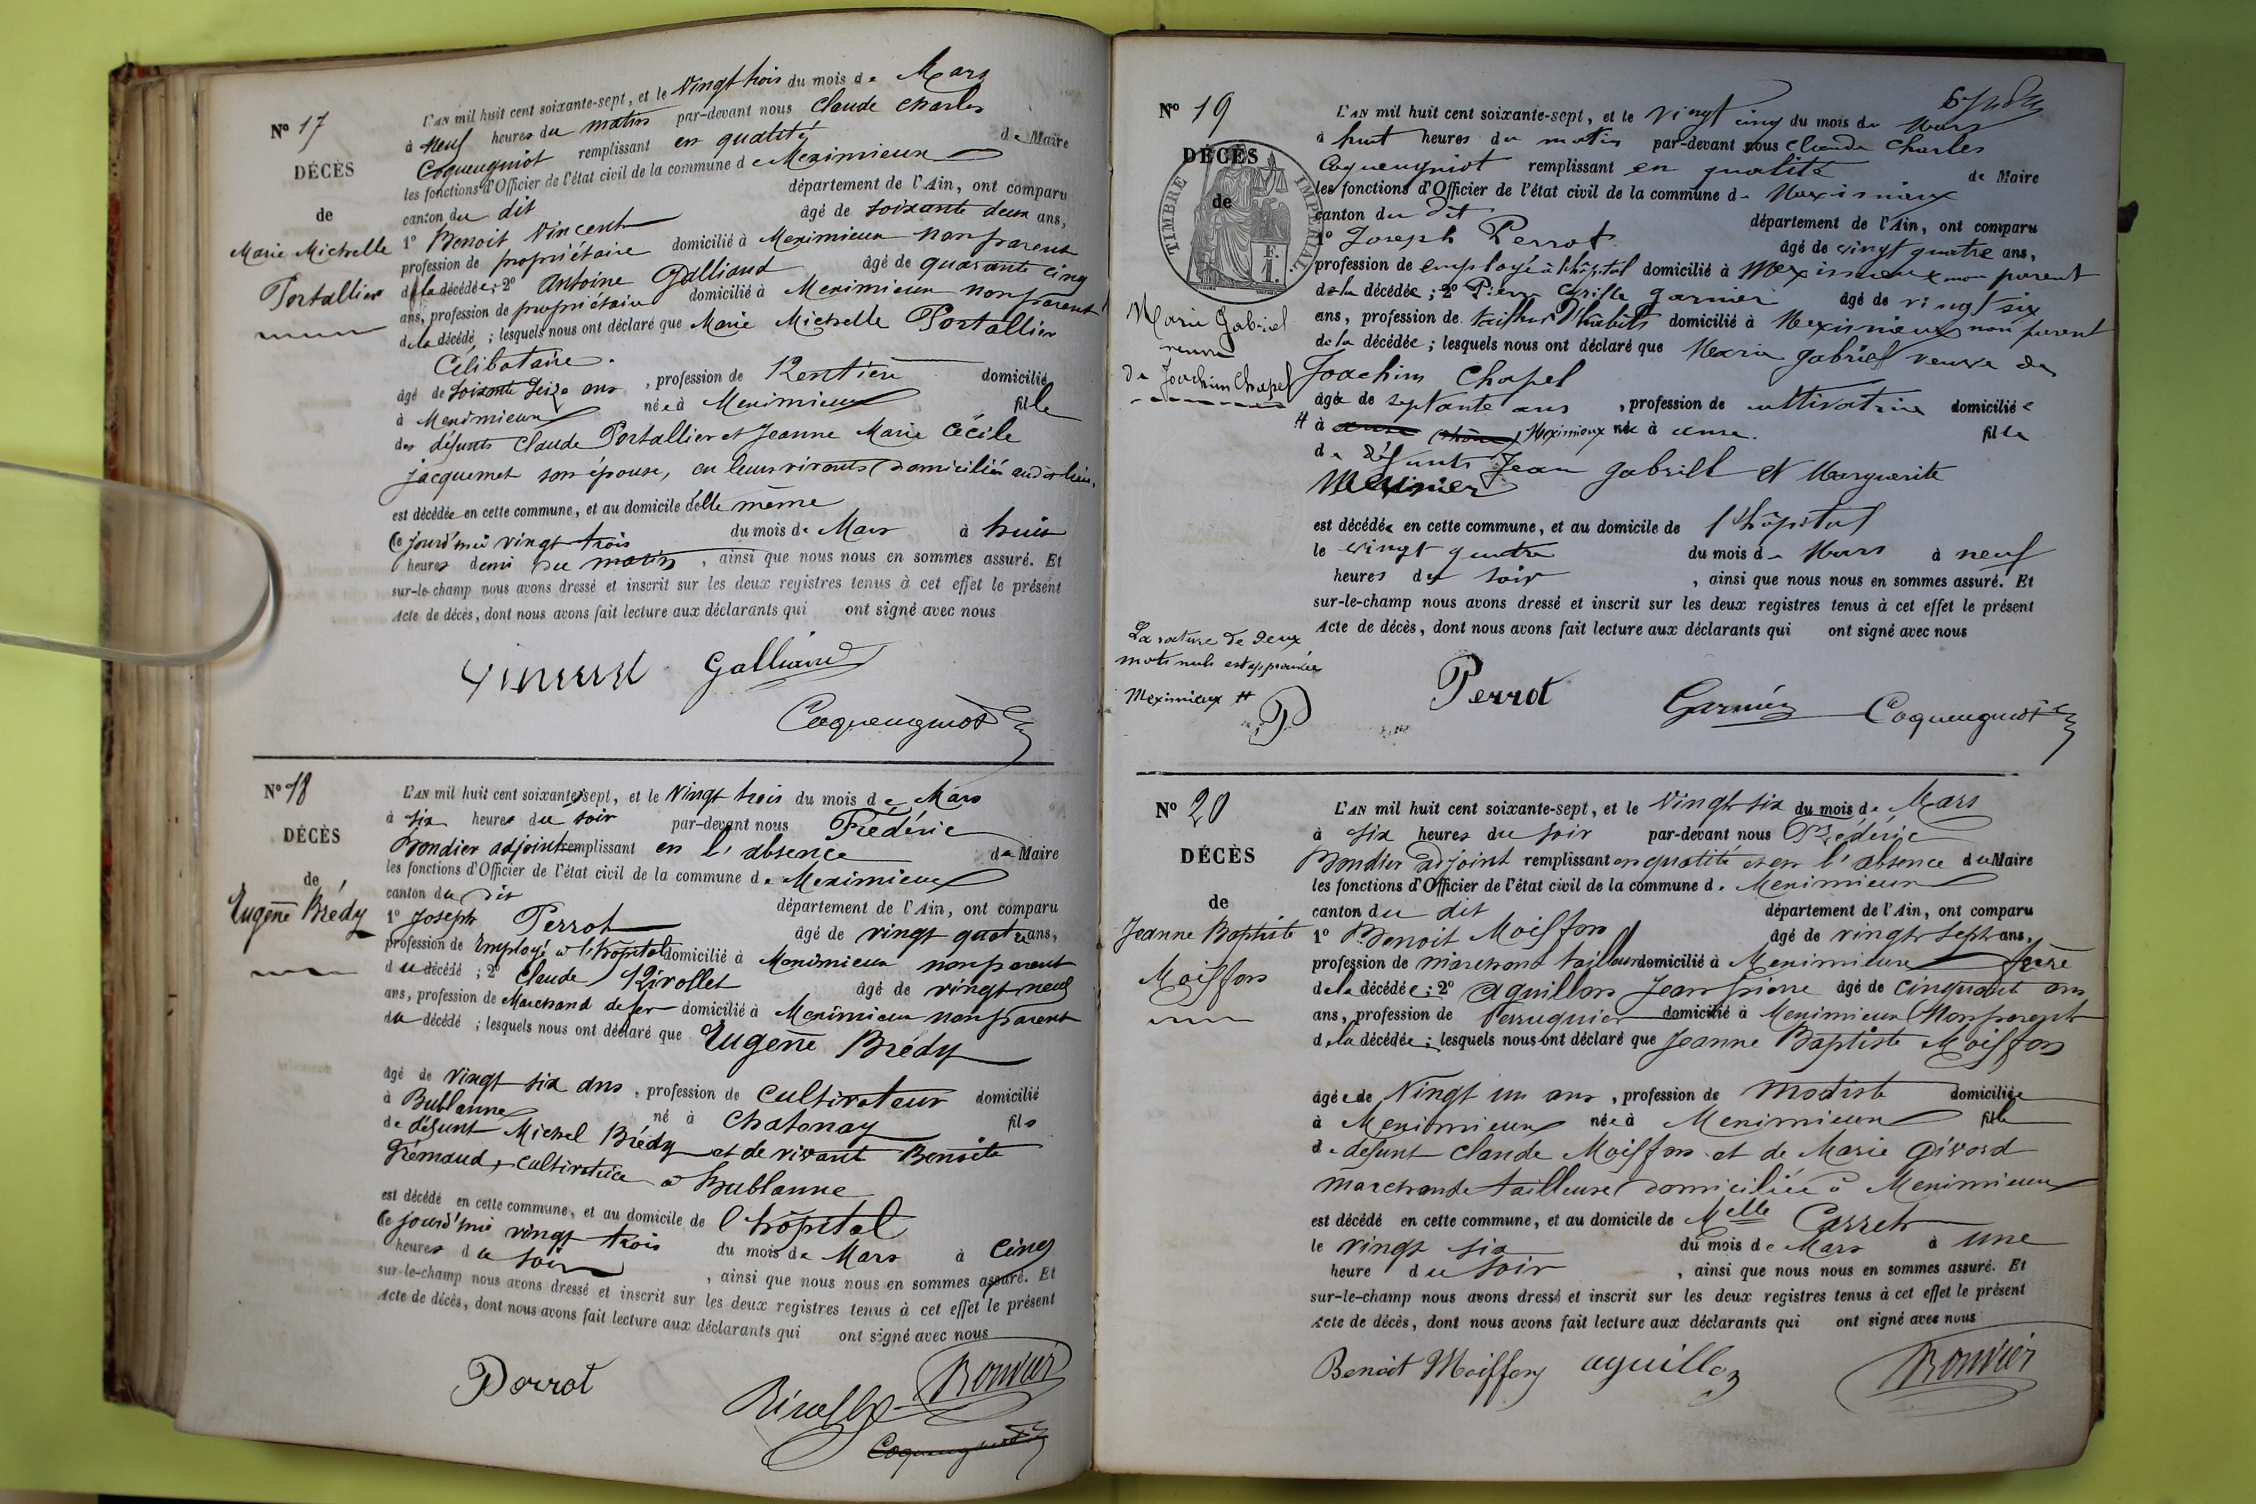 N° 17
DÉCÈS
de
Marie Michelle
Portallier
L'AN mil huit cent soixante-sept, et le Vingt trois du mois de Mars
à neuf heures du matin par-devant nous Claude Charles
Coqueugniot remplissant en qualité de Maire
les fonctions d'Officier de l'état civil de la commune de Meximieux
canton du dit département de l'Ain, ont comparu
1° Benoit Vincent âgé de soixante deux ans,
profession de propriétaire domicilié à Meximieux non parent
de la décédée; 2° Antoine Galliand âgé de quarante cinq
ans, profession de propriétaire domicilié à Meximieux non parent
de la décédé ; lesquels nous ont déclaré que Marie Michelle Portallier
Célibataire.
âgé de soixante seize ans , profession de Rentière domicilié
à Meximieux née à Meximieux fille
des défunts Claude Portallier et Jeanne Marie Cécile
jacquemet son épouse, en leurs vivants domiciliés audit lieu,
est décédée en cette commune, et au domicile d'elle même
Ce jourd'hui vingt trois du mois de Mars à huit
heures demi du matin , ainsi que nous nous en sommes assuré. Et
sur-le-champ nous avons dressé et inscrit sur les deux registres tenus à cet effet le présent
Acte de décès, dont nous avons fait lecture aux déclarants qui ont signé avec nous
Vincent Galliand
Coqueugniot
N° 18
DÉCÈS
de
Eugène Brédy
L'AN mil huit cent soixante-sept, et le Vingt trois du mois de Mars
à six heures du soir par-devant nous Frédéric
adjoint remplissant en l'absence de Maire
les fonctions d'Officier de l'état civil de la commune de Meximieux
canton du dit département de l'Ain, ont comparu
1° Joseph Perrot âgé de vingt quatre ans,
profession de Employé à l'hôpital domicilié à Meximieux non parent
du décédé ; 2° Claude Rivollet âgé de vingt neuf
ans, profession de Marchand de fer domicilié à Meximieux non parent
du décédé ; lesquels nous ont déclaré que Eugène Brédy
âgé de vingt six ans , profession de Cultivateur domicilié
à Bublanne né à Chatonay fils
de défunt Michel Brédy et de vivant Benoite
Grémaud, cultivatrice à Bublanne
est décédé en cette commune, et au domicile de l'hôpital
Ce jourd'hui vingt trois du mois de Mars à Cinq
heures du soir , ainsi que nous nous en sommes assuré. Et
sur-le-champ nous avons dressé et inscrit sur les deux registres tenus à cet effet le présent
Acte de décès, dont nous avons fait lecture aux déclarants qui ont signé avec nous
Perrot
Coqueugniot
N° 19
TIMBRE IMPÉRIAL
DÉCÈS
de
Marie Gabriel
veuve
de Joachim Chapel
L'AN mil huit cent soixante-sept, et le vingt cinq du mois de Mars
à huit heures du matin par-devant nous Claude Charles
Coqueugniot remplissant en qualité de Maire
les fonctions d'Officier de l'état civil de la commune de Meximieux
canton du dit département de l'Ain, ont comparu
1° Joseph Perrot âgé de vingt quatre ans,
profession de employé à l'hôpital domicilié à Meximieux non parent
de la décédée ; 2° Pierre Cyrille Garnier âgé de vingt six
ans, profession de tailleur d'habits domicilié à Meximieux non parent
de la décédée ; lesquels nous ont déclaré que Marie Gabriel veuve de
Joachim Chapel
âgée de septante ans , profession de cultivatrice domiciliée
# à anse (Rhône) Meximieux née à anse. fille
de défunts Jean Gabriel et Marguerite
Meunier
est décédée en cette commune, et au domicile de l'hôpital
le vingt quatre du mois de Mars à neuf
heures du soir , ainsi que nous nous en sommes assuré. Et
sur-le-champ nous avons dressé et inscrit sur les deux registres tenus à cet effet le présent
Acte de décès, dont nous avons fait lecture aux déclarants qui ont signé avec nous
La rature de deux
mots nuls est approuvée
Meximieux #
Perrot Garnier Coqueugniot
N° 20
DÉCÈS
de
Jeanne Baptiste
Moiffon
L'AN mil huit cent soixante-sept, et le Vingt six du mois de Mars
à six heures du soir par-devant nous Frédéric
adjoint remplissant en qualité et en l'absence du Maire
les fonctions d'Officier de l'état civil de la commune de Meximieux
canton du dit département de l'Ain, ont comparu
1° Benoit Moiffon âgé de vingt sept ans,
profession de marchand tailleur domicilié à Meximieux frère
de la décédée ; 2° Aguillon Jean pierre âgé de cinquante ans
ans, profession de Perruquier domicilié à Meximieux Non parent
de la décédée ; lesquels nous ont déclaré que Jeanne Baptiste Moiffon
âgée de Vingt un ans , profession de Modiste domiciliée
à Meximieux née à Meximieux fille
de défunt Claude Moiffon et de Marie Givord
marchande tailleuse domiciliée à Meximieux
est décédé en cette commune, et au domicile de Melle Carret
le vingt six du mois de Mars à une
heure du soir , ainsi que nous nous en sommes assuré. Et
sur-le-champ nous avons dressé et inscrit sur les deux registres tenus à cet effet le présent
Acte de décès, dont nous avons fait lecture aux déclarants qui ont signé avec nous
Benoit Moiffon aguillon